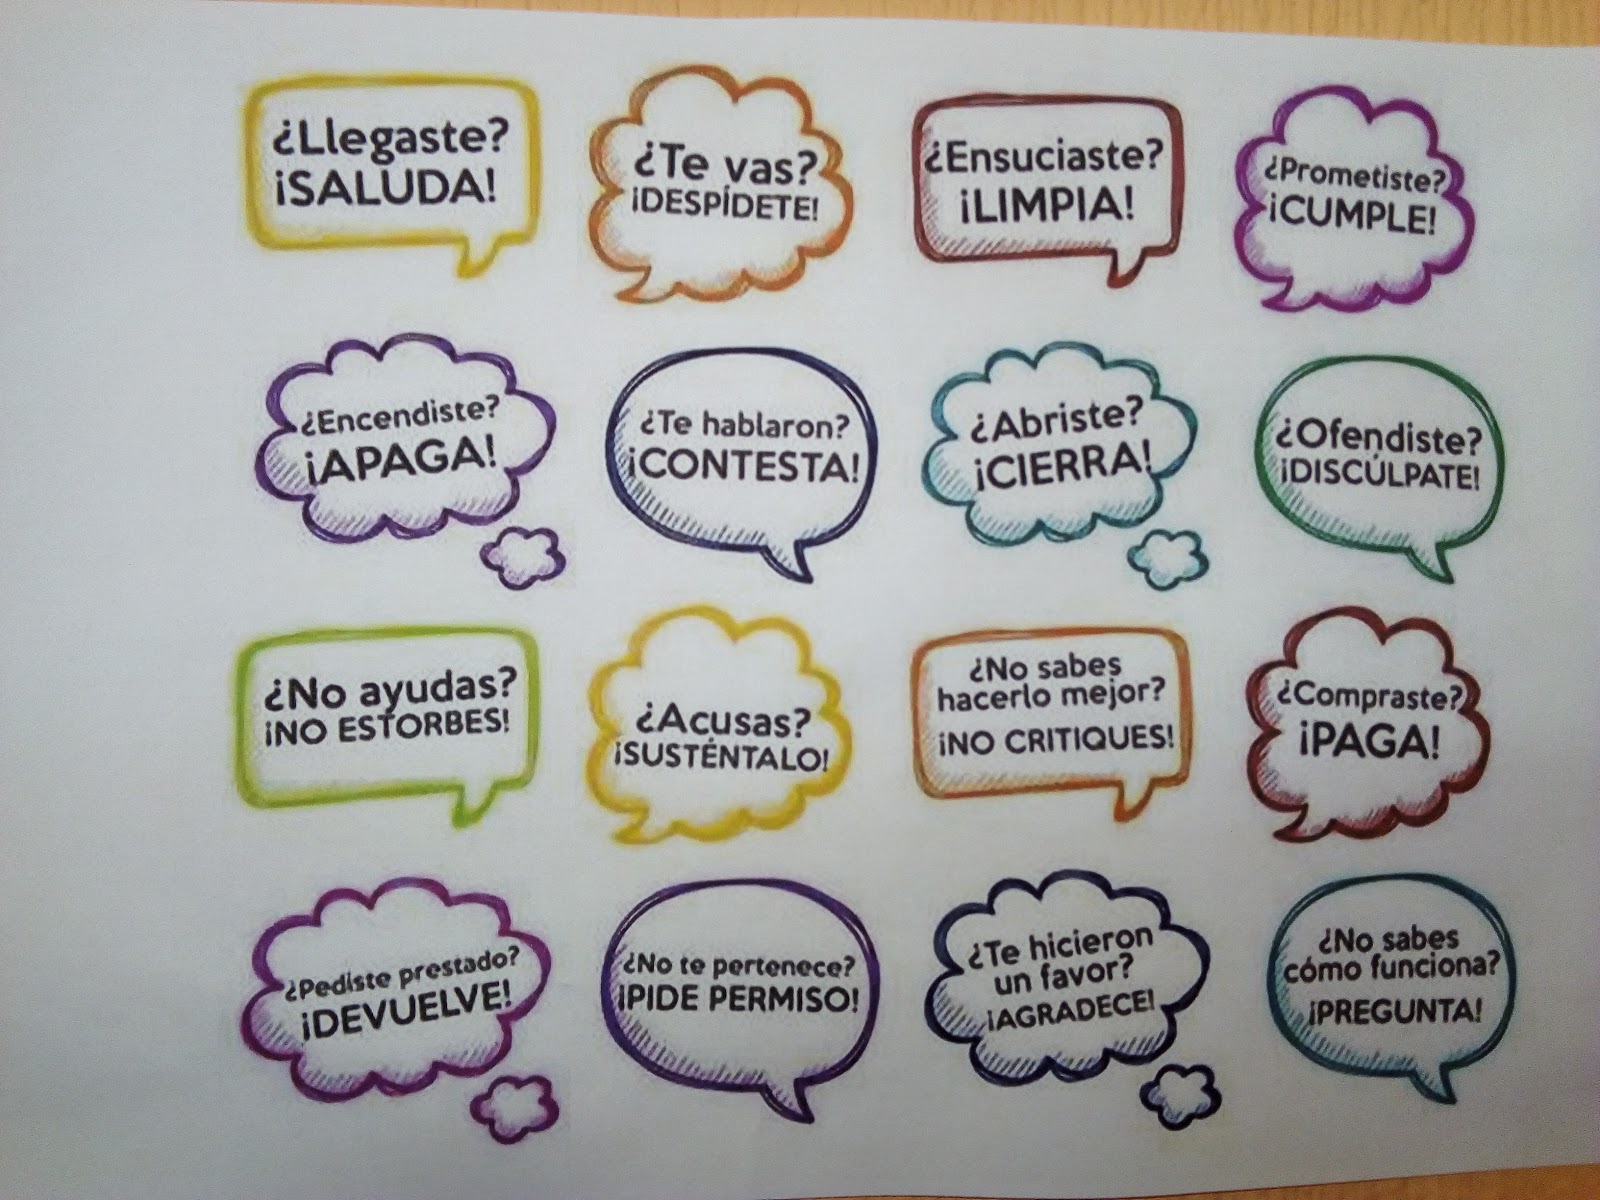 ¿Llegaste?
¡SALUDA!
¿Te vas?
¡DESPÍDETE!
¿Ensuciaste?
¡LIMPIA!
¿Prometiste?
¡CUMPLE!
¿Encendiste?
¡APAGA!
¿Te hablaron?
¡CONTESTA!
¿Abriste?
¡CIERRA!
¿Ofendiste?
¡DISCÚLPATE!
¿No ayudas?
¡NO ESTORBES!
¿Acusas?
¡SUSTÉNTALO!
¿No sabes
hacerlo mejor?
¡NO CRITIQUES!
¿Compraste?
¡PAGA!
¿Pediste prestado?
¡DEVUELVE!
¿No te pertenece?
¡PIDE PERMISO!
¿Te hicieron
un favor?
¡AGRADECE!
¿No sabes
cómo funciona?
¡PREGUNTA!